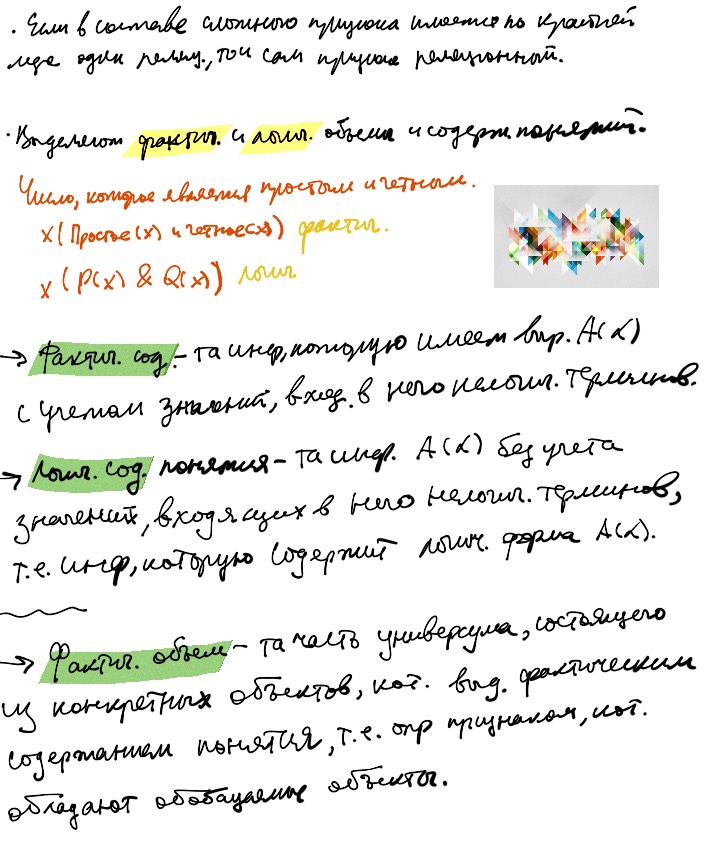 · Если в составе сложного признака имеется по крайней
мере один реляц., то и сам признак реляционный.
· Выделяют фактич. и логич. объемы и содерж. понятий.
Число, которое является простым и четным.
x(Простое(x) и четное(x)) фактич.
x (P(x) & Q(x)) логич.
→ Фактич. сод. – та инф, которую имеем выр. A(α)
с учетом значений, вход. в него нелогич. терминов.
→ Логич. сод. понятия – та инф. A(α) без учета
значений, входящих в него нелогич. терминов,
т.е. инф, которую содержит логич. форма A(α).
→ Фактич. объем – та часть универсума, состоящего
из конкретных объектов, кот. выд. фактическим
содержанием понятия, т.е. опр признаком, кот.
обладают обобщаемые объекты.